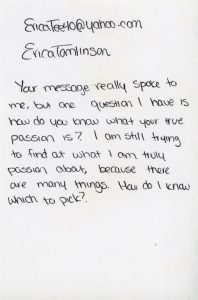 EricaTee40@yahoo.com
EricaTomlinson
Your message really spoke to
me, but one question I have is
how do you know what your true
passion is? I am still trying
to find at what I am truly
passion about, because there
are many things. How do I know
which to pick?